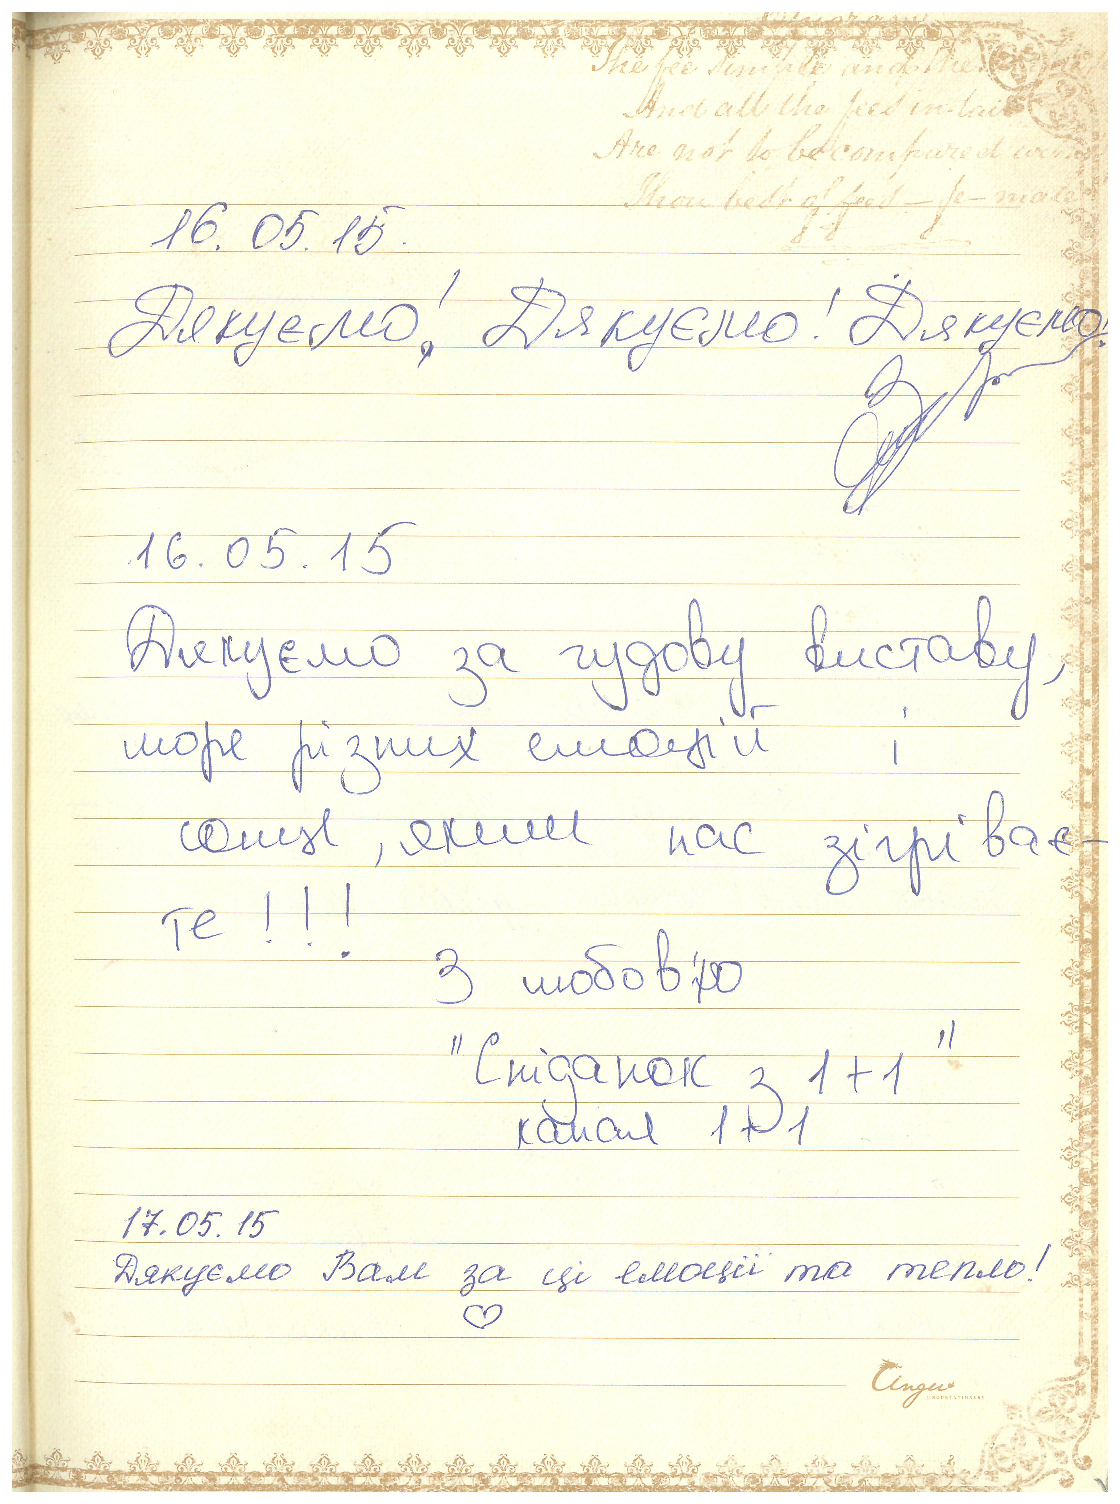 The fee simple and the
And all the feed in-tail
Are not to be compared with
Thou best of feed - fe-male
16.05.15.
Дякуємо! Дякуємо! Дякуємо!
16.05.15
Дякуємо за чудову виставу,
море різних емоцій і
сонце, яким нас зігріває-
те!!!
З любов'ю
"Сніданок з 1+1"
канал 1+1
17.05.15
Дякуємо Вам за ці емоції та тепло!